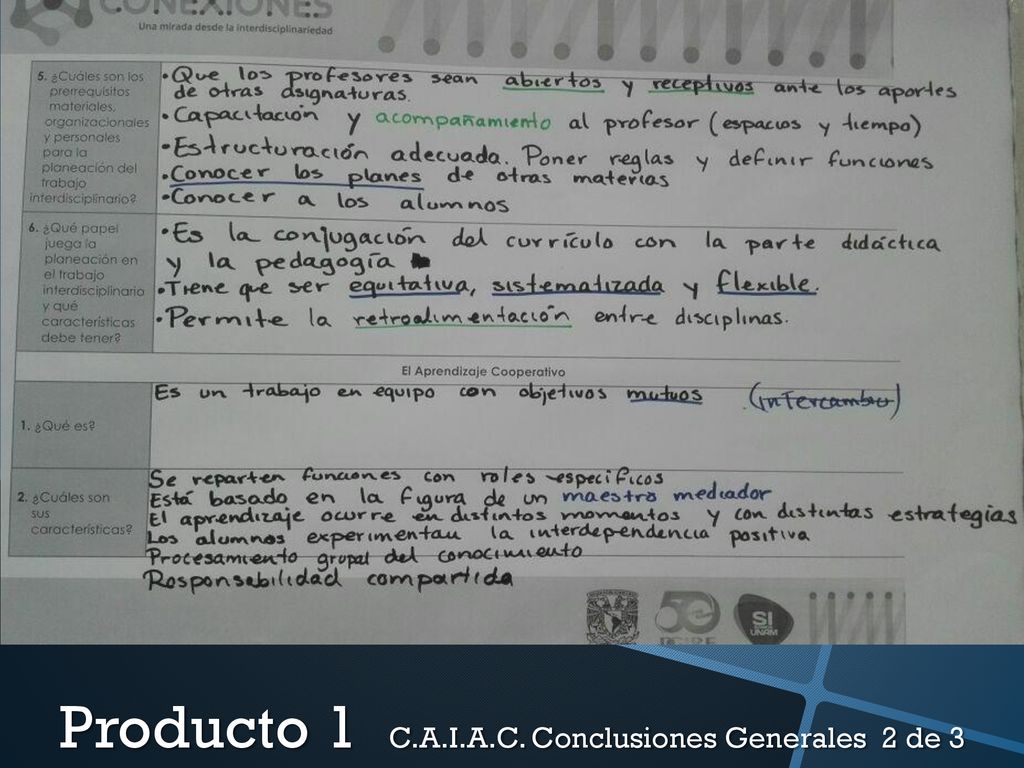 CONEXIONES
Una mirada desde la interdisciplinariedad
5. ¿Cuáles son los
prerrequisitos
materiales,
organizacionales
y personales
para la
planeación del
trabajo
interdisciplinario?
•Que los profesores sean abiertos y receptivos ante los aportes
de otras asignaturas.
•Capacitación y acompañamiento al profesor (espacios y tiempo)
•Estructuración adecuada. Poner reglas y definir funciones
•Conocer los planes de otras materias
•Conocer a los alumnos
6. ¿Qué papel
juega la
planeación en
el trabajo
interdisciplinario
y qué
características
debe tener?
•Es la conjugación del currículo con la parte didáctica
y la pedagogía
•Tiene que ser equitativa, sistematizada y flexible.
•Permite la retroalimentación entre disciplinas.
El Aprendizaje Cooperativo
1. ¿Qué es?
Es un trabajo en equipo con objetivos mutuos (intercambio)
2. ¿Cuáles son
sus
características?
Se reparten funciones con roles específicos
Está basado en la figura de un maestro mediador
El aprendizaje ocurre en distintos momentos y con distintas estrategias
Los alumnos experimentan la interdependencia positiva
Procesamiento grupal del conocimiento
Responsabilidad compartida
50
DGIRE
SI
UNAM
Producto 1 C.A.I.A.C. Conclusiones Generales 2 de 3